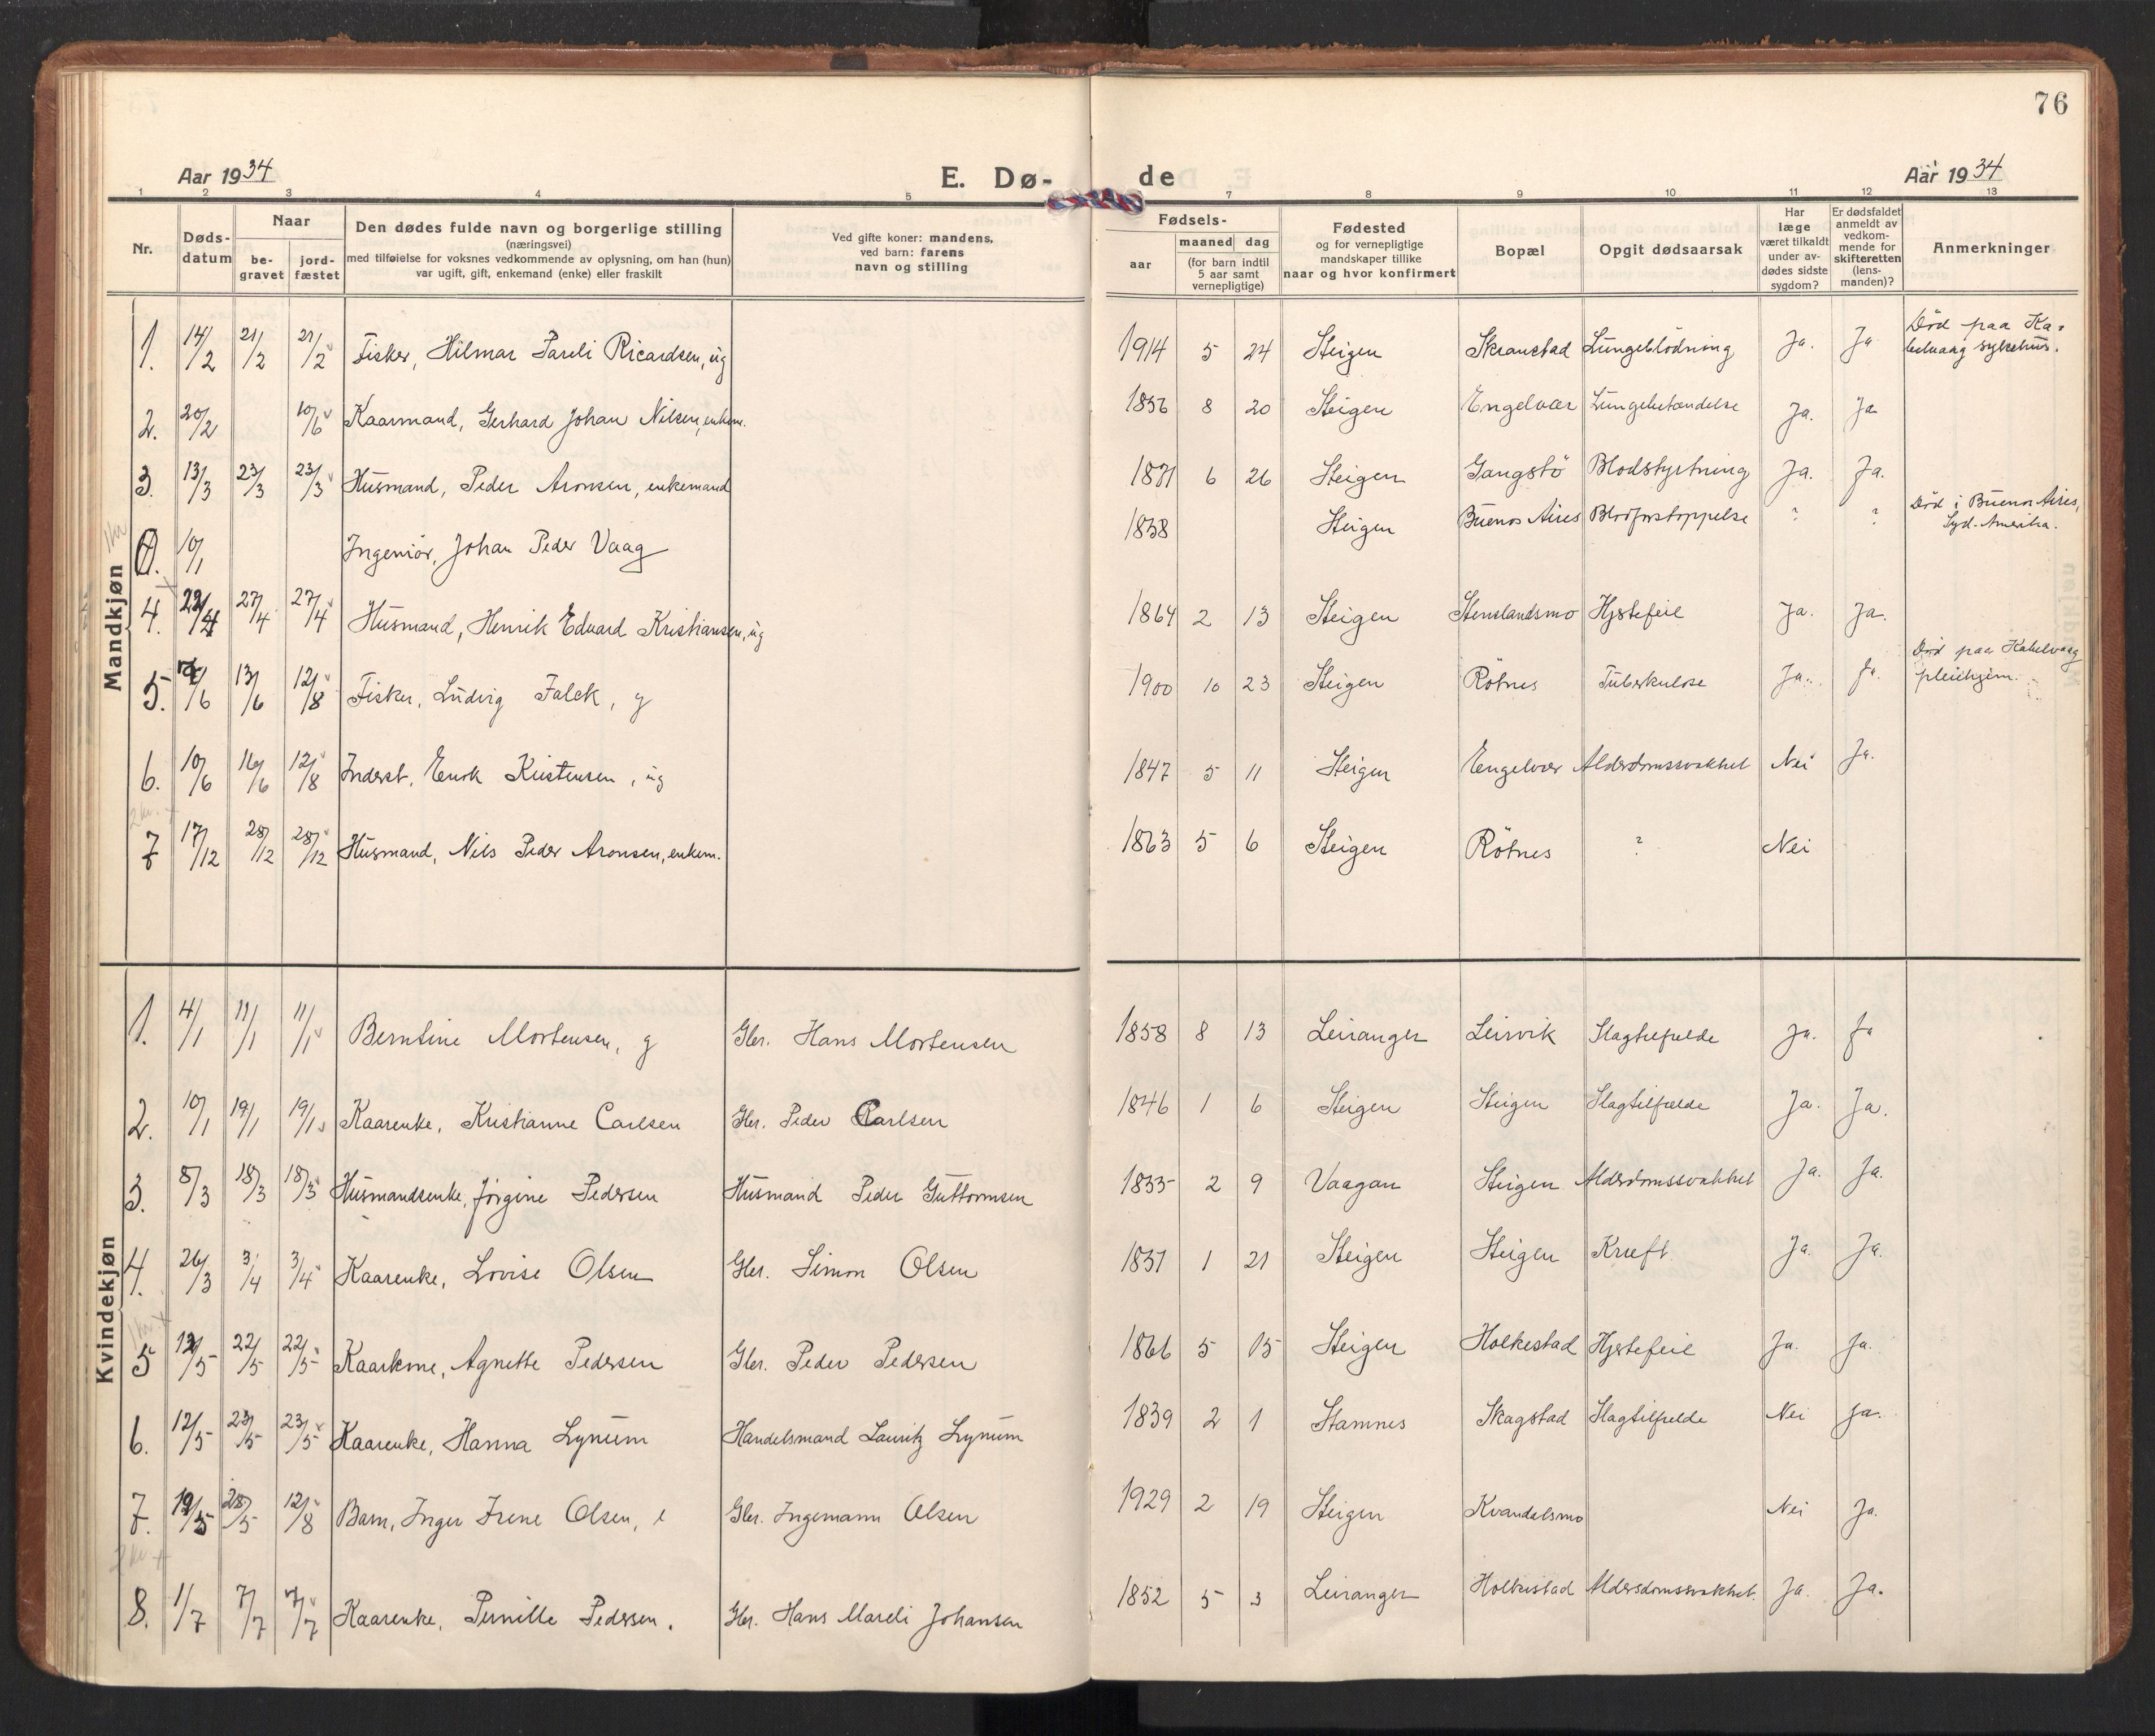 76
Aar 1934
E. Dø-
de
Aar 1934
1 2 3 4 5 7 8 9 10 11 12 13
Nr.
Døds-
datum
Naar
be-
gravet
jord-
fæstet
Den dødes fulde navn og borgerlige stilling
(næringsvei)
med tilføielse for voksnes vedkommende av oplysning, om han (hun)
var ugift, gift, enkemand (enke) eller fraskilt
Ved gifte koner: mandens,
ved barn: farens
navn og stilling
Fødsels-
aar
maaned dag
(for barn indtil
5 aar samt
vernepligtige)
Fødested
og for vernepligtige
mandskaper tillike
naar og hvor konfirmert
Bopæl
Opgit dødsaarsak
Har
læge
været tilkaldt
under av-
dødes sidste
sygdom?
Er dødsfaldet
anmeldt av
vedkom-
mende for
skifteretten
(lens-
manden)?
Anmerkninger
Mandkjøn
1. 14/2 21/2 21/2 Fisker, Hilmar Pareli Ricardsen, ug 1914 5 24 Steigen Skranstad Lungeblödning Ja. Ja Död paa Ka-
belvaag sykehus.
2. 20/2 10/6 Kaarmand, Gerhard Johan Nilsen, enkem. 1856 8 20 Steigen Engelvær Lungebetændelse Ja. Ja
3. 13/3 23/3 23/3 Husmand, Peder Aronsen, enkemand 1871 6 26 Steigen Gangstö Blodstyrtning Ja. Ja.
0. 10/1 Ingeniör, Johan Peder Vaag 1858 Steigen Buenos Aires Blodforstoppelse ? ? Död i Buenos Aires,
Syd-Amerika.
4. 22/4 27/4 27/4 Husmand, Henrik Edvard Kristiansen, ug 1864 2 13 Steigen Stenslandsmo Hjertefeil Ja. Ja.
5. /6 13/6 12/8 Fisker, Ludvig Falck, g 1900 10 23 Steigen Rötnes Tuberkulose Ja. Ja. Död paa Kabelvaag
pleiehjem.
6. 10/6 16/6 12/8 Inderst, Enok Kristensen, ug 1847 5 11 Steigen Engelvær Alderdomssvakhet Nei Ja.
7 17/12 28/12 28/12 Husmand, Nils Peder Aronsen, enkem. 1863 5 6 Steigen Rötnes ? Nei
Kvindekjøn
1. 4/1 11/1 11/1 Berntine Mortensen, g Gbr. Hans Mortensen 1858 8 13 Leiranger Leirvik Slagtilfelde Ja. Ja
2. 10/1 19/1 19/1 Kaarenke, Kristianne Carlsen Gbr. Peder Carlsen 1846 1 6 Steigen Steigen Slagtilfælde Ja. Ja.
3. 8/3 18/3 18/3 Husmandsenke, Jörgine Pedersen Husmand Peder Guttormsen 1835 2 9 Vaagan Steigen Alderdomssvakhet Ja. Ja.
4. 26/3 3/4 3/4 Kaarenke, Lovise Olsen Gbr. Simon Olsen 1851 1 21 Steigen Steigen Kræft Ja. Ja.
5 12/5 22/5 22/5 Kaarkone, Agnette Pedersen Gbr. Peder Pedersen 1866 5 15 Steigen Holkestad Hjertefeil Ja. Ja.
6. 12/5 23/5 23/5 Kaarenke, Hanna Lynum Handelsmand Lauritz Lynum 1839 2 1 Stamnes Skagstad Slagtilfelde Nei Ja.
7. 19/5 28/5 12/8 Barn, Inger Irene Olsen, e Gbr. Ingemann Olsen 1929 2 19 Steigen Kvandalsmo Nei Ja.
8. 1/7 7/7 7/7 Kaarenke, Pernille Pedersen. Gbr. Hans Mareli Johansen 1852 5 3 Leiranger Holkestad Aldersdomssvakhet. Ja. Ja.